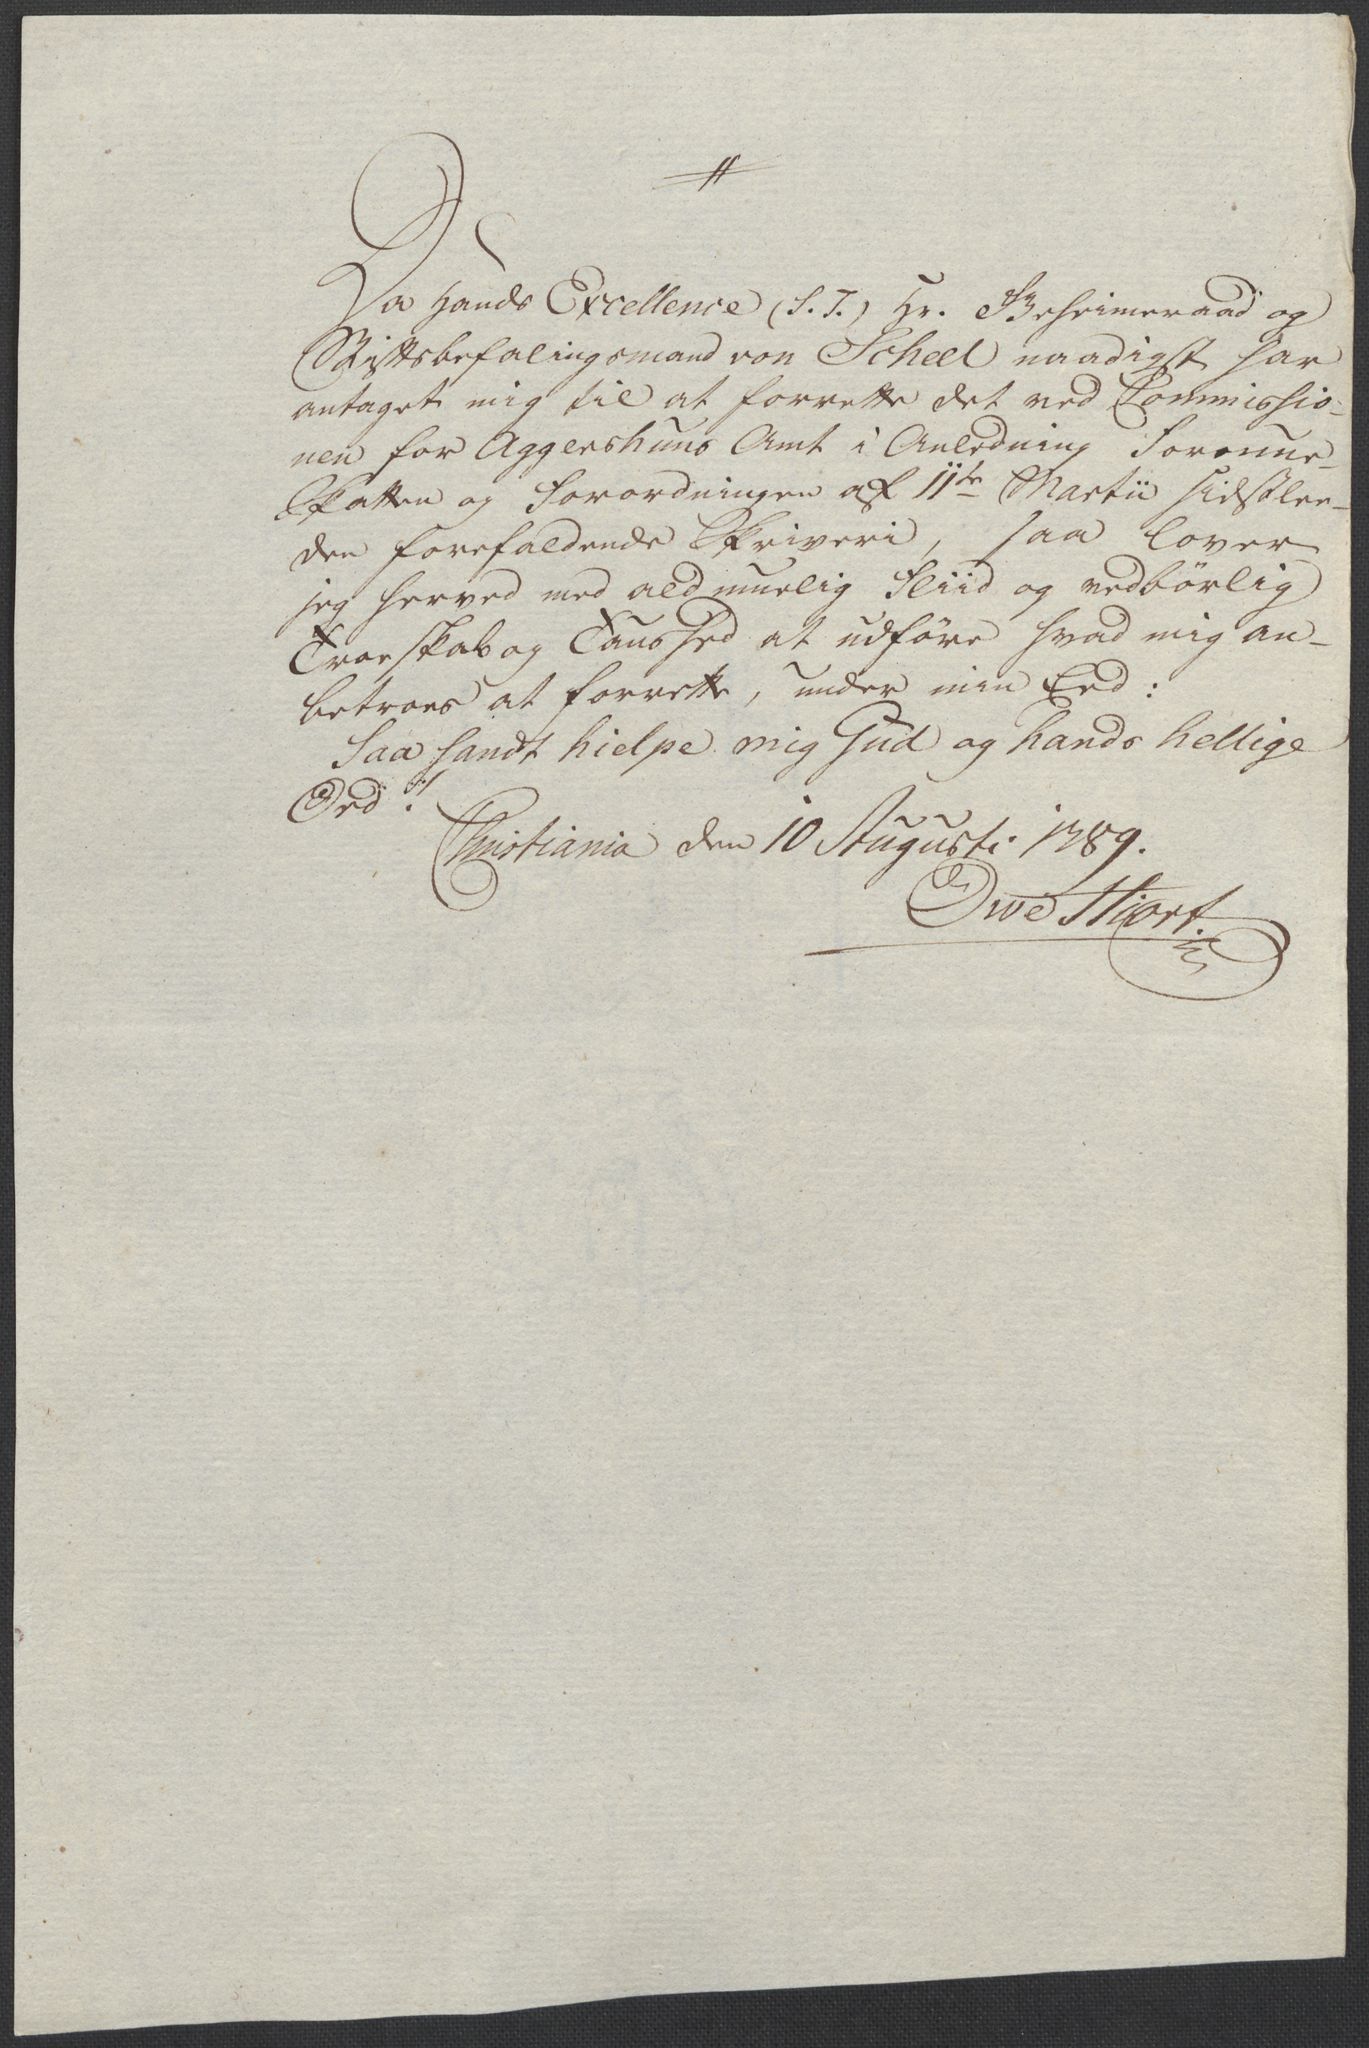 Da Hands Excellence (S. T.) Hr. Geheimeraad og
Stiftsbefalingsmand von Scheel naadigst har
antaget mig til at forrette det ved Commissio-
nen for Aggershuus Amt i Anledning Formue-
Skatten og Forordningen af 11te Martii sidstlee-
den forefaldende Skriveri, saa lover
jeg herved med ald muelig Fliid og vedbörlig
Troeskab og Taushed at udföre hvad mig an-
betroes at forrette, under min Eed:
Saa sandt hielpe mig Gud og hands hellige
Ord!
Christiania den 10 Augusti 1789.
Owe Hiort.